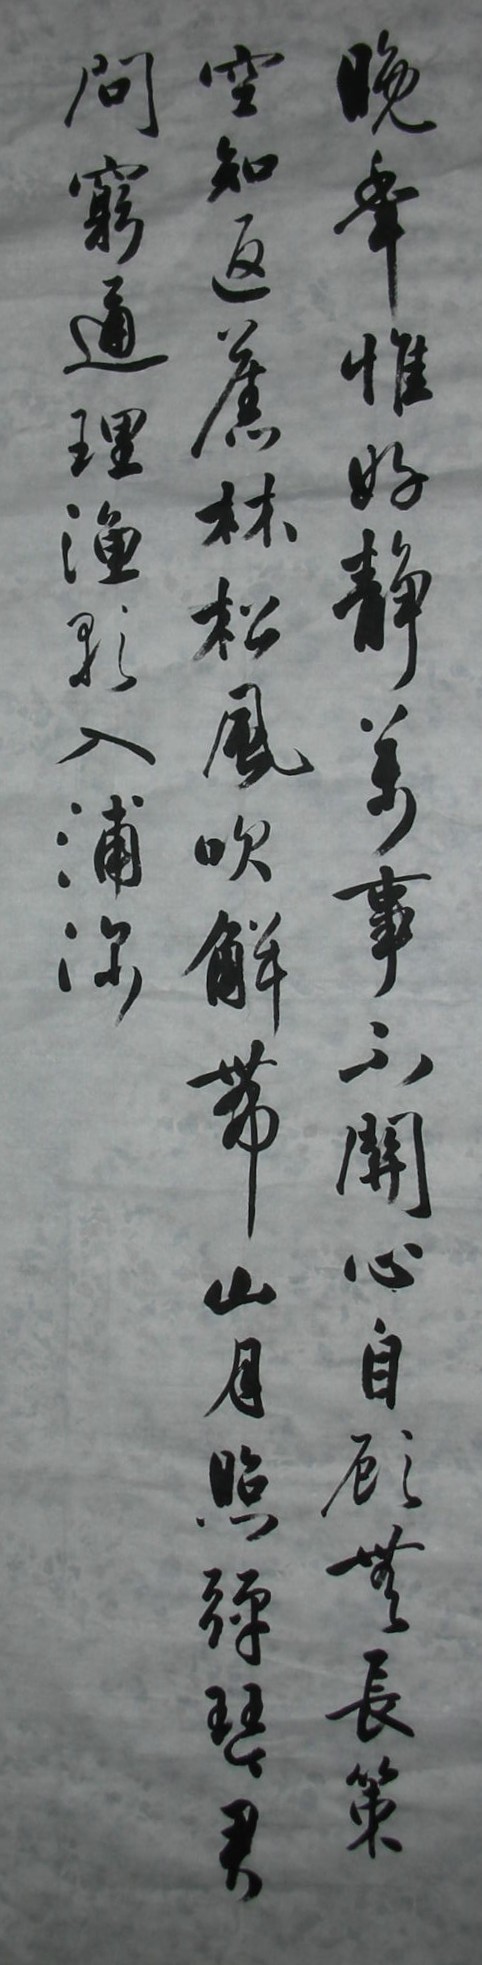 晚年惟好靜萬事不關心自顧無長策
空知返舊林松風吹解帶山月照彈琴君
問窮通理漁歌入浦深